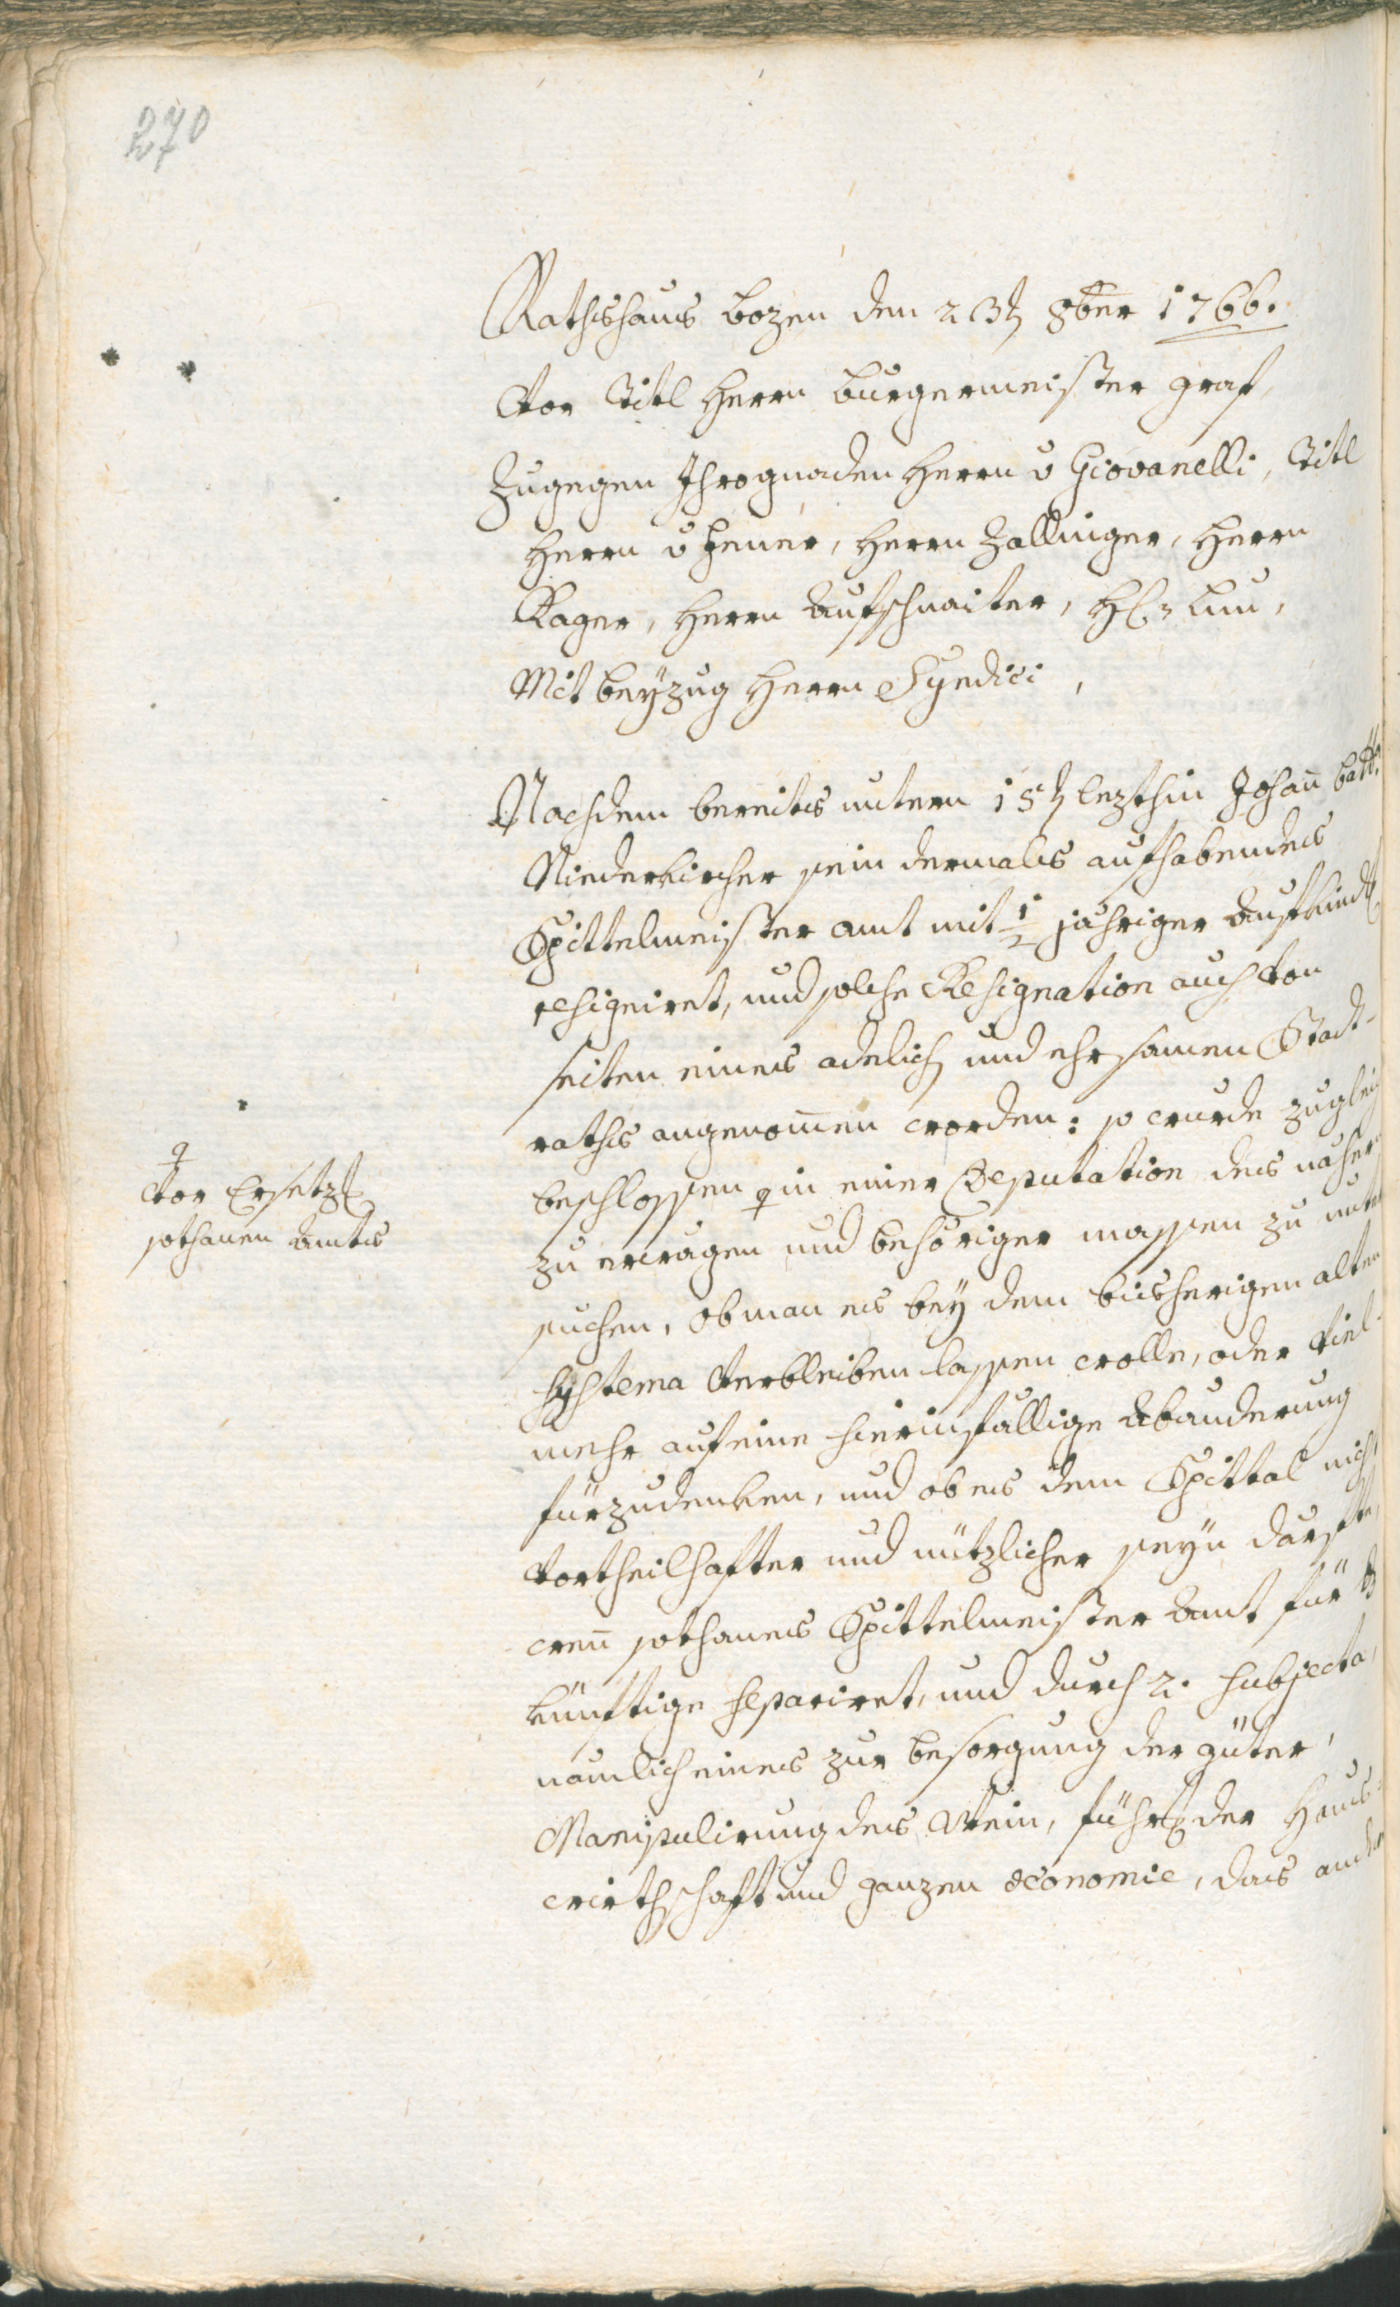 270
Rathshaus Bozen den 23ten 8ber 1766.
Vor Titl Herrn Burgermeister Graf,
Zugegen Ihrognaden Herrn v Giovanelli, Titl
Herrn v Hener, Herrn Zallinger, Herrn
Rager, Herrn Aufschnaiter, H: Lun,
Mit beyzug Herrn Syndici,
Nachdem bereits untern 15ten lezthin Johañ Batt:
Niederkircher sein dermals aufhabendes
Spittelmeister amt mit 1/2 jähriger Aufkindt
resigniret, und solche Resignation auch von
seiten eines adelich und ehrsamen Stadt-
raths angenom̄en worden: so wurde zugleich
beschlossen in einer Deputation des näher
zu erwegen und behöriger massen zu unter
suchen, ob man es bey dem bisherigen alten
systema verbleiben lassen wolle, oder viel-
mehr auf eine hierinfällige Abänderung
fürzudenken, und ob es dem Spittal nicht
vortheilhafter und nützlicher seyn därfte,
weñ sothanes Spittelmeister Amt für das
künftige separiret, und durch 2. subjecta,
nämlich eines zur besorgung der güter,
Manipulirung des Wein, führung der Haus-
wirthschaft und ganzen œconomie, das ander
vor Ersetzung
sothanen Amts